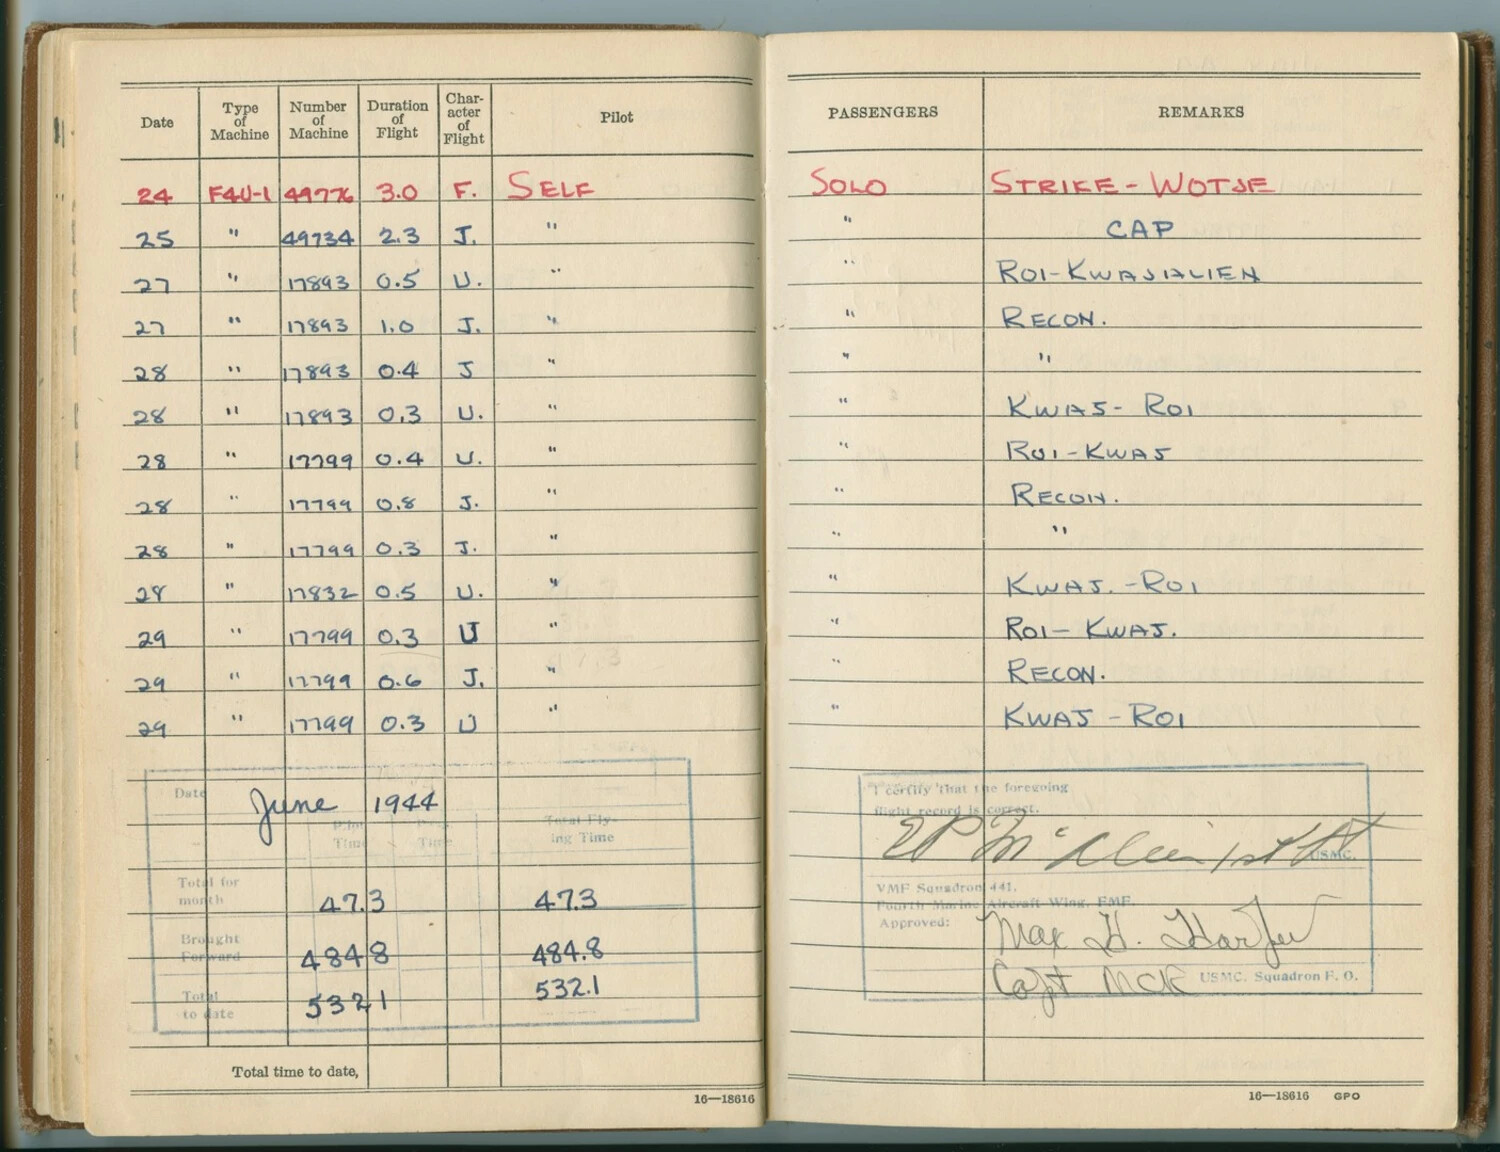 Date Type of Machine Number of Machine Duration of Flight Char-acter of Flight Pilot PASSENGERS REMARKS
24 F4U-1 49776 3.0 F. SELF SOLO STRIKE - WOTJE
25 " 49734 2.3 J. " " CAP
27 " 17893 0.5 U. " " ROI-KWAJALIEN
27 " 17893 1.0 J. " " RECON.
28 " 17893 0.4 J " " "
28 " 17893 0.3 U. " " KWAJ - ROI
28 " 17799 0.4 U. " " ROI-KWAJ
28 " 17799 0.8 J. " " RECON.
28 " 17799 0.3 J. " " "
28 " 17832 0.5 U. " " KWAJ. - ROI
29 " 17799 0.3 U " " ROI - KWAJ.
29 " 17799 0.6 J. " " RECON.
29 " 17799 0.3 U " " KWAJ - ROI
Date June 1944
Pilot Time Time Total Fly-ing Time
Total for month 47.3 47.3
Brought Forward 484.8 484.8
Total to date 532.1 532.1
Total time to date,
16—18616
I certify that the foregoing
flight record is correct.
1st Lt USMC.
VMF Squadron 441,
Fourth Marine Aircraft Wing, FMF.
Approved: Max H.
Capt MCR USMC. Squadron F. O.
16—18616 GPO